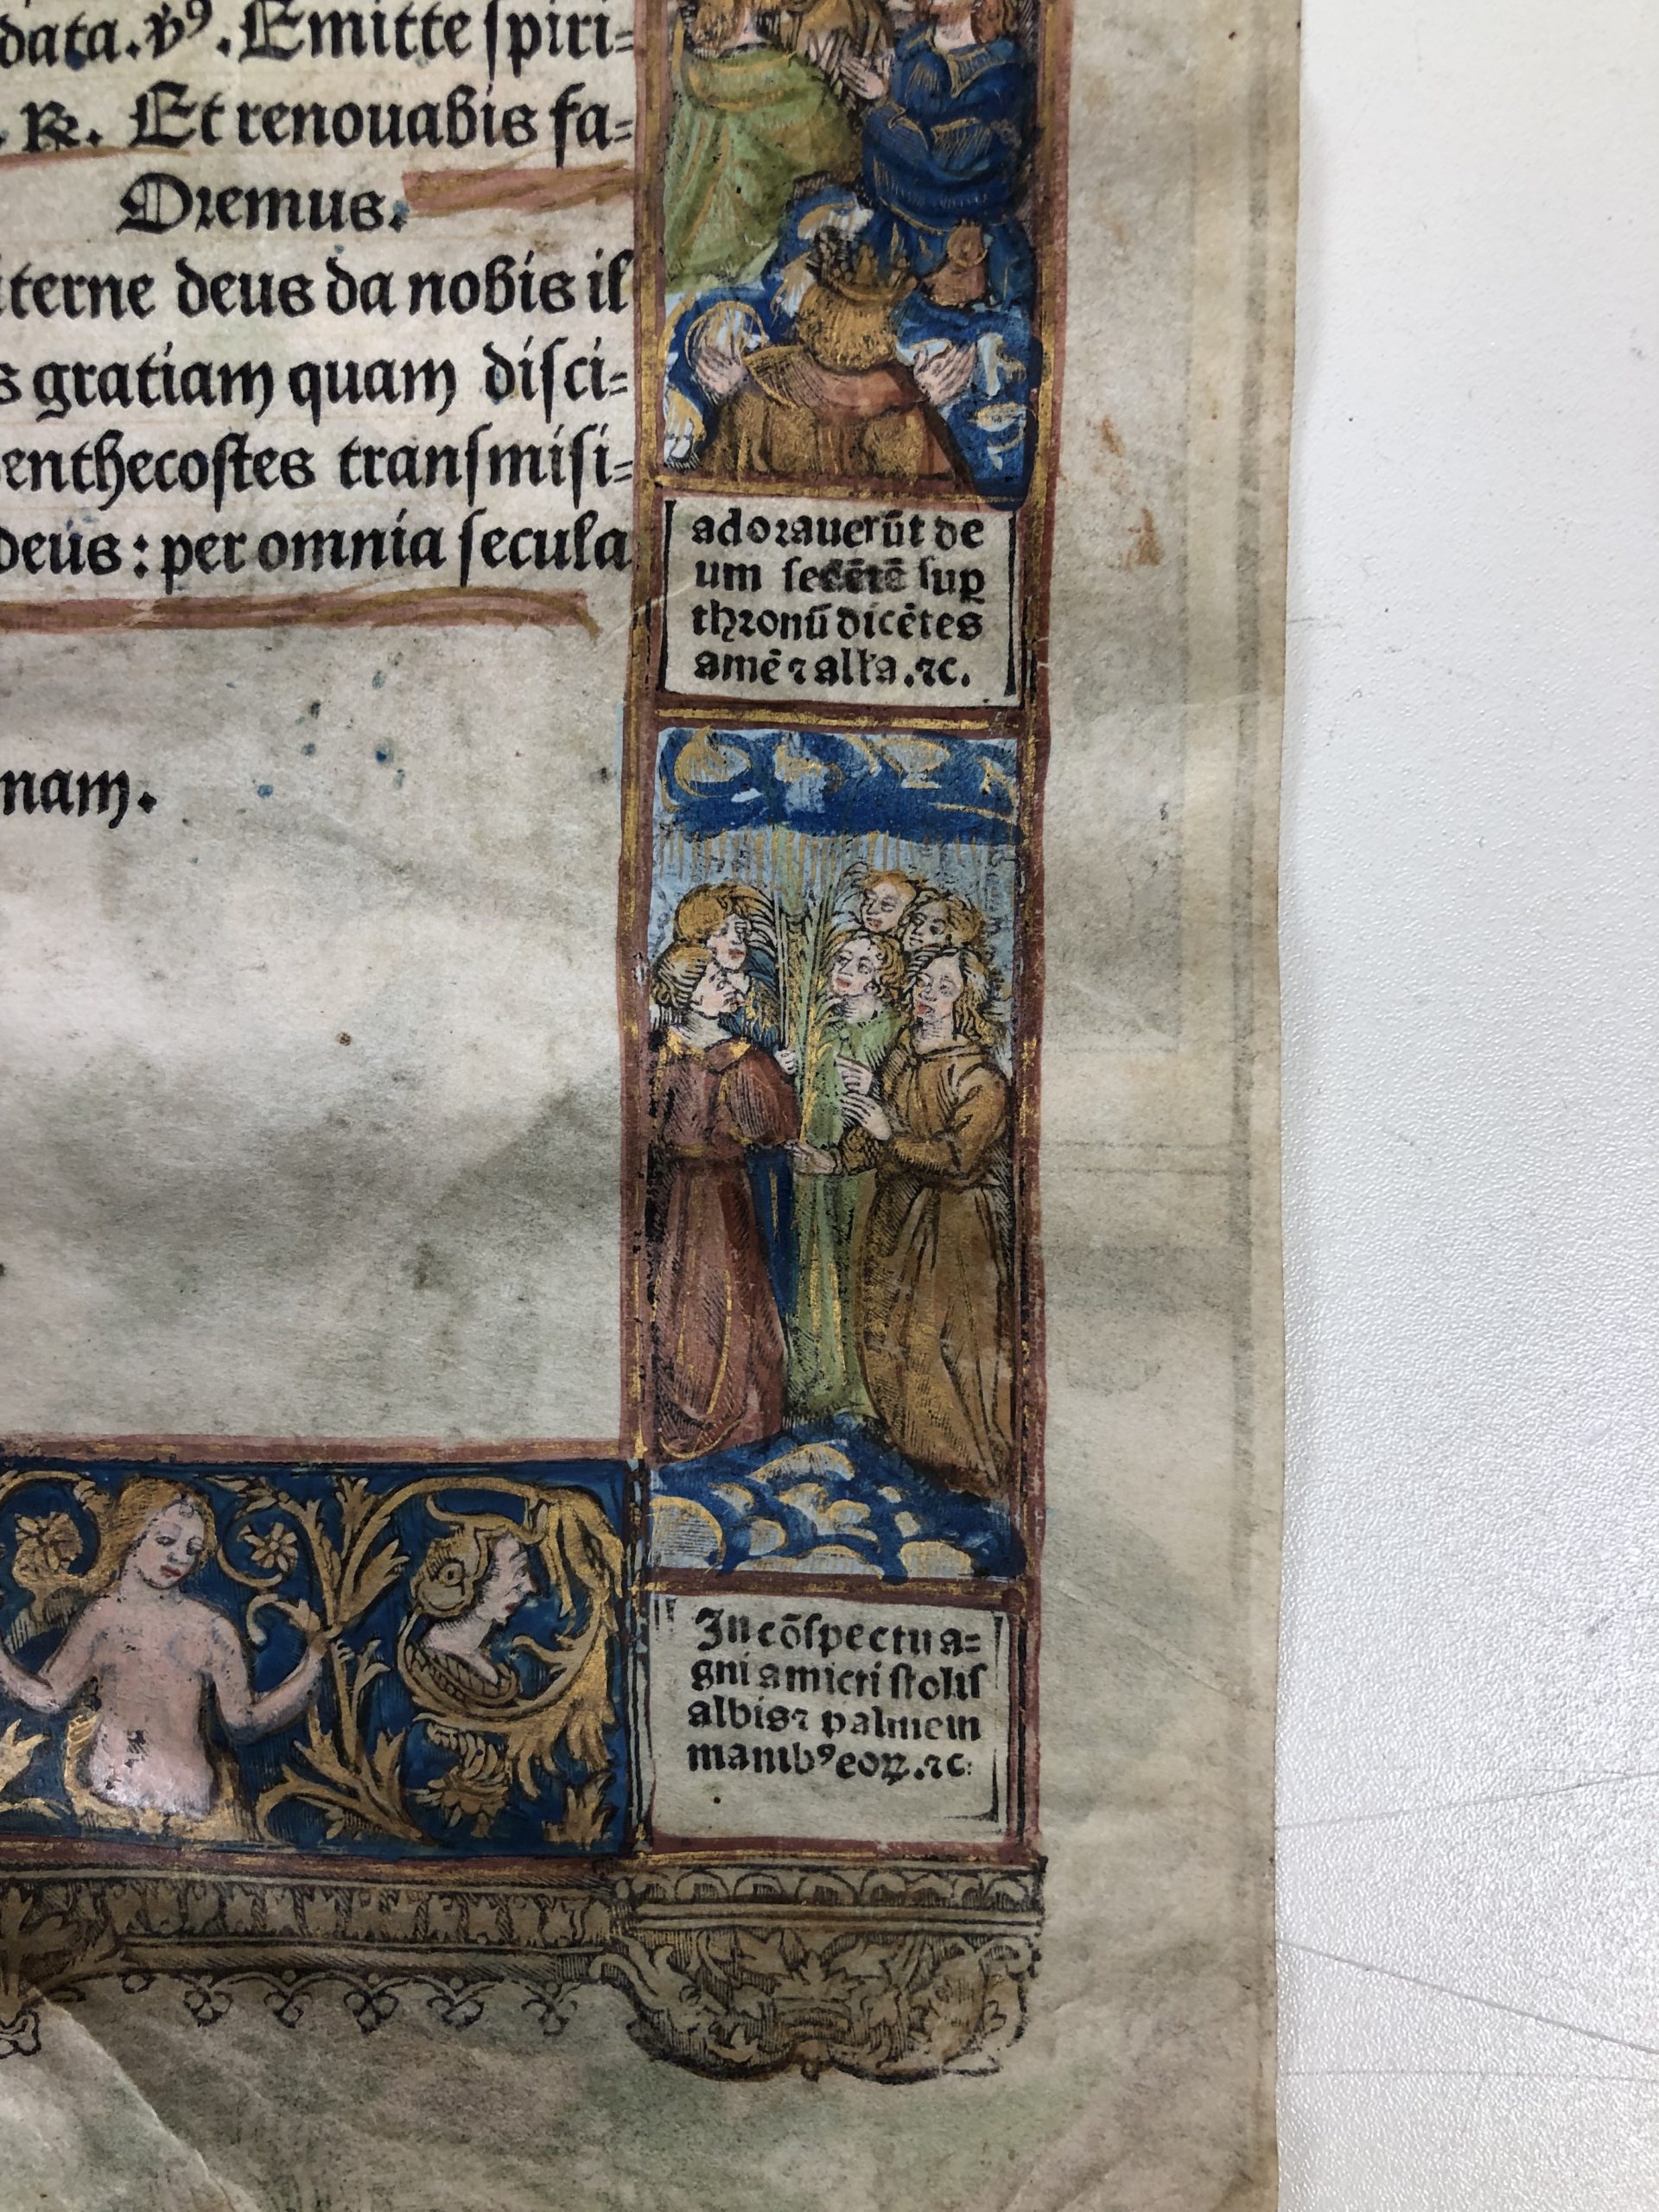 data. v⁹. Emitte spiri=
. ℟. Et renouabis fa=
Oremus.
iterne deus da nobis il
s gratiam quam disci=
penthecostes transmisi=
deus: per omnia secula
nam.
adorauerūt de
um sedētē sup
thronū dicētes
amē ⁊ alla. ⁊c.
In cōspectu a=
gni amicti stolis
albis ⁊ palme in
manib⁹ eoꝝ. ⁊c.